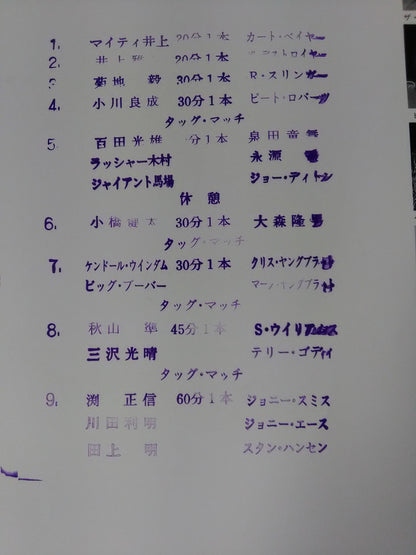 1. マイティ井上 20分1本 カート・ベイヤー
2. 井上 20分1本
3. 菊地 毅 30分1本 R・スリンガー
4. 小川良成 30分1本 ビート・ロバーツ
タッグ・マッチ
5. 百田光雄 分1本 泉田竜舞
ラッシャー木村 永源
ジャイアント馬場 ジョー・ディトン
休憩
6. 小橋健太 30分1本 大森隆男
タッグ・マッチ
7. ケンドール・ウインダム 30分1本 クリス・ヤングブラッド
ビッグ・ブーバー マーク・ヤングブラッド
タッグ・マッチ
8. 秋山 準 45分1本 S・ウイリアムス
三沢光晴 テリー・ゴディ
タッグ・マッチ
9. 渕 正信 60分1本 ジョニー・スミス
川田利明 ジョニー・エース
田上 明 スタン・ハンセン